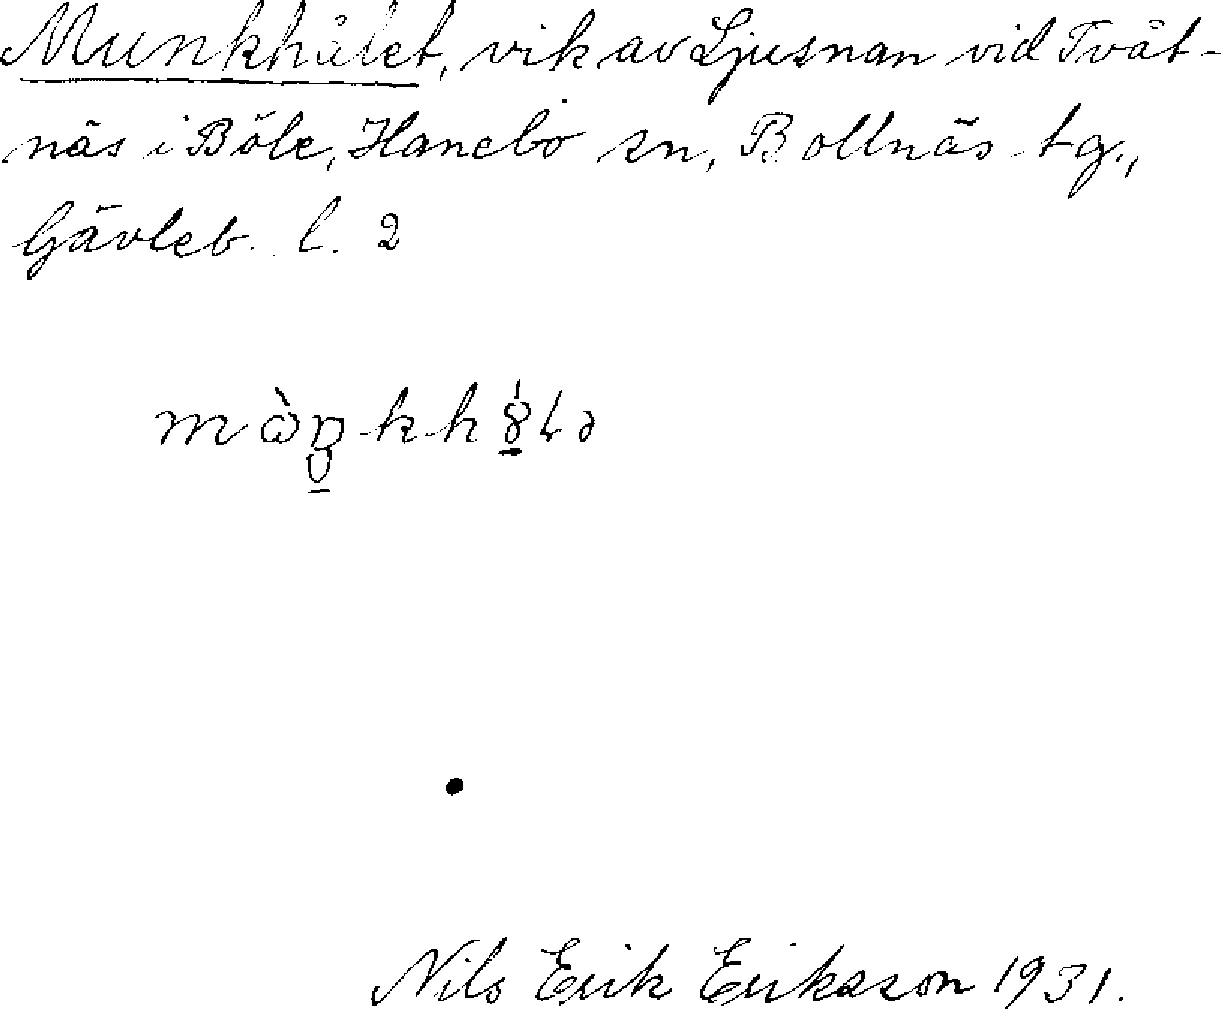 Munkhålet, vik av Ljusnan vid Tvät-
näs i Böle, Hanebo sn, Bollnäs tg.,
Gävleb. l. 2
Nils Erik Eriksson 1931.